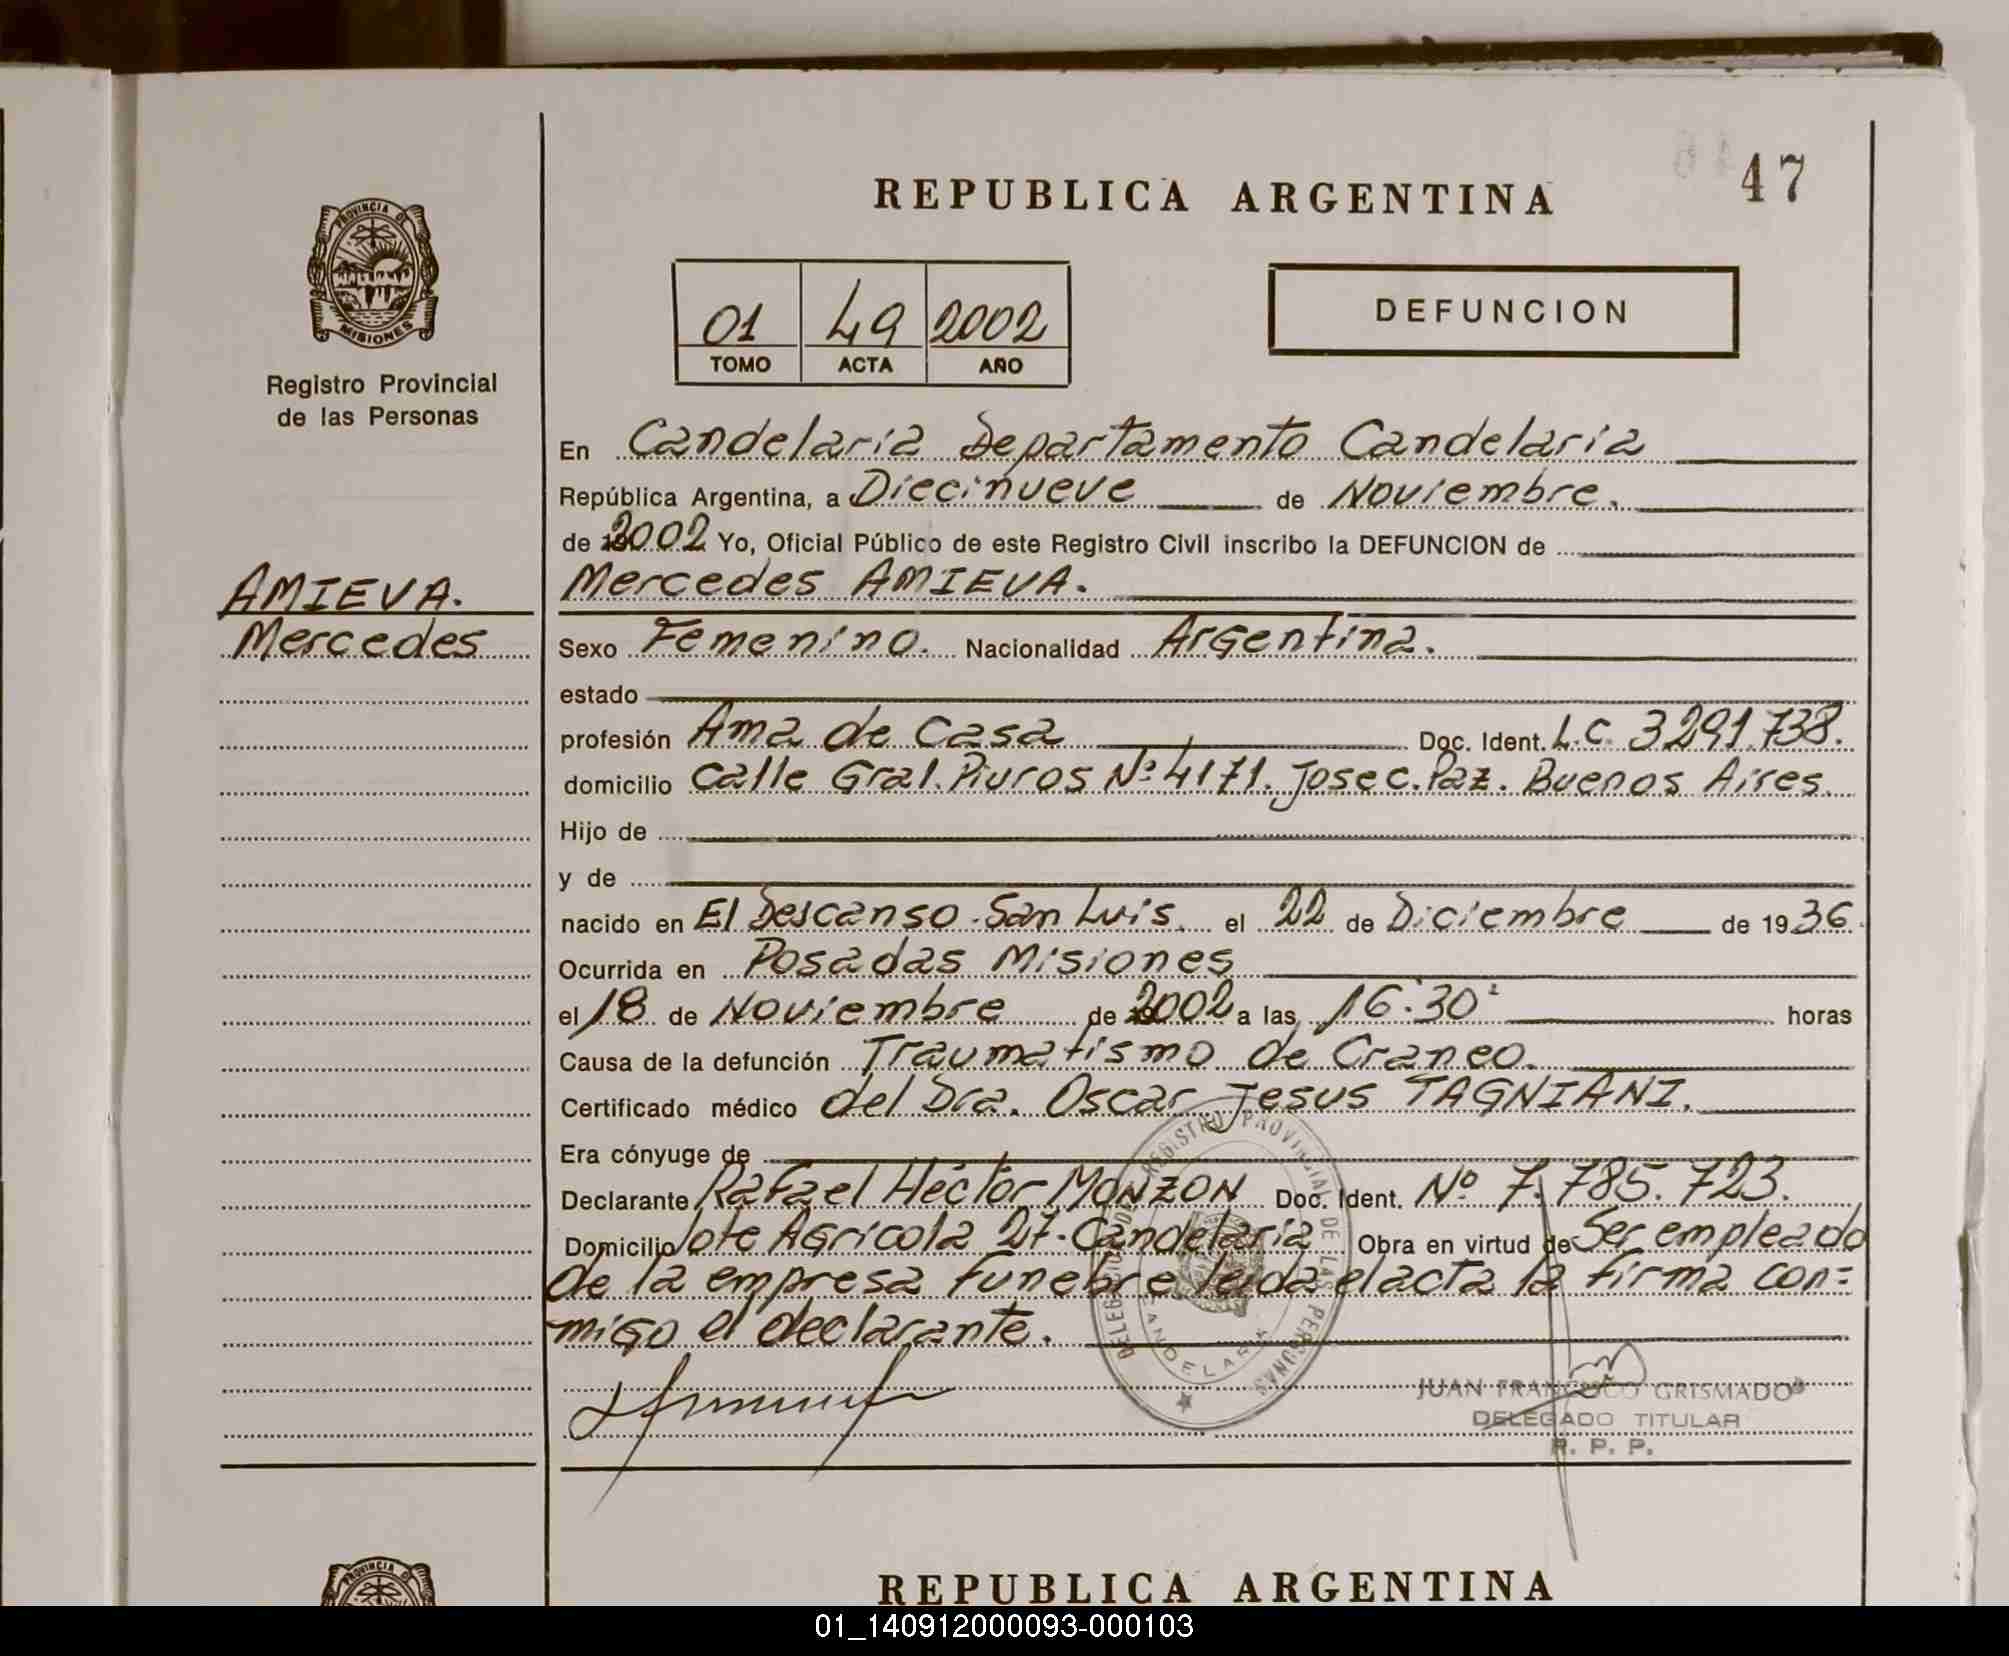 47
REPUBLICA ARGENTINA
PROVINCIA DE
MISIONES
01 49 2002
TOMO ACTA AÑO
DEFUNCION
Registro Provincial
de las Personas
En Candelaria Departamento Candelaria
República Argentina, a Diecinueve de Noviembre.
de 2002 Yo, Oficial Público de este Registro Civil inscribo la DEFUNCION de
AMIEVA.
Mercedes AMIEVA.
Mercedes
Sexo Femenino. Nacionalidad Argentina.
estado
profesión Ama de Casa Doc. Ident. L.C. 3291.738.
domicilio Calle Gral. Piuros Nº 4171. Jose C. Paz. Buenos Aires.
Hijo de
y de
nacido en El Descanso. San Luis. el 22 de Diciembre de 1936.
Ocurrida en Posadas Misiones
el 18 de Noviembre de 2002 a las 16:30 horas
Causa de la defunción Traumatismo de Craneo.
Certificado médico del Dra. Oscar Jesus TAGNIANI.
Era cónyuge de
Declarante Rafael Héctor MONZON Doc. Ident. Nº 7.785.723.
Domicilio lote Agrícola 27. Candelaria Obra en virtud de Ser empleado
de la empresa funebre leida el acta la firma con=
migo el declarante.
DELEGACION DEL REGISTRO PROVINCIAL DE LAS PERSONAS
CANDELARIA
JUAN FRANCISCO GRISMADO
DELEGADO TITULAR
R. P. P.
PROVINCIA DE
REPUBLICA ARGENTINA
01_140912000093-000103